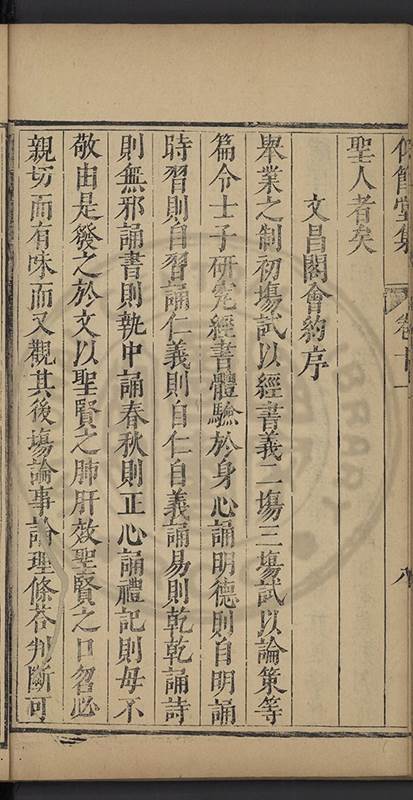 集 卷十一
聖人者矣
文昌閣會約序
舉業之制初塲試以經書義二塲三塲試以論策等
篇令士子研究經書體驗於身心誦明德則自明誦
時習則自習誦仁義則自仁自義誦易則乾乾誦詩
則無邪誦書則執中誦春秋則正心誦禮記則毋不
敬由是發之於文以聖賢之肺肝效聖賢之口吻必
親切而有味而又觀其後塲論事論理條荅判斷可